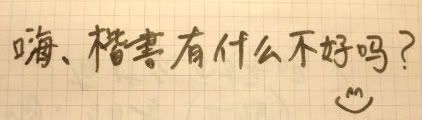 嗨、楷書有什么不好吗?